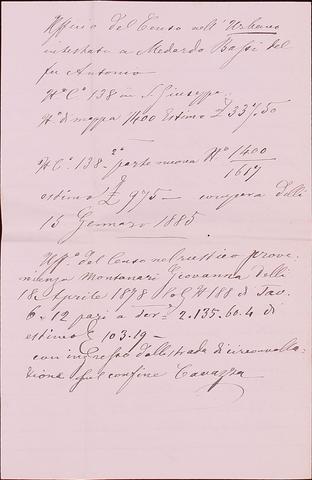 Ufficio del Censo nell'Urbano
intestato a Medardo Bassi del
fu Antonio
N° C° 138 in S. Giuseppe.
N° di mappa 1400 Estimo £ 337.50
N. C°. 138-2° parte nuova N° 1400/1617
estimo £ 975 — compera delli
15 Gennaro 1885
Uff.° del Censo nel rustico prove-
nienza Montanari Giovanna delli
18 Aprile 1878 N. 188 di Tav.
6-12 pari a 2.135.60.4 di
estimo £ 103.19 —
con ingresso dalla strada di circonvalla-
zione sul confine Cavazza